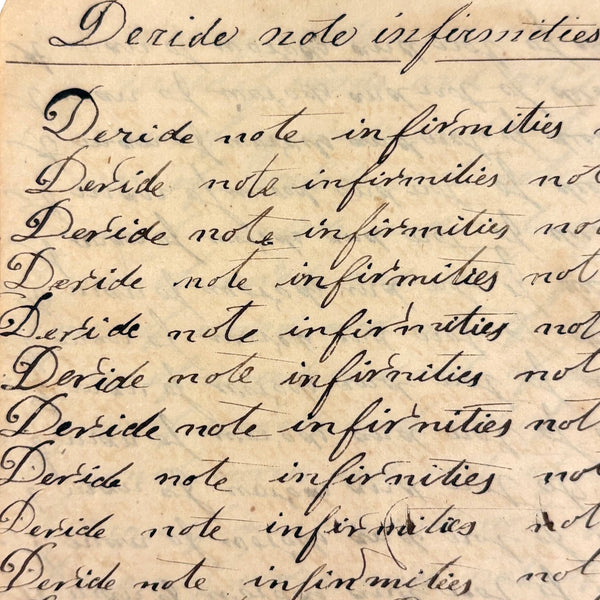 Deride note infirmities
Deride note infirmities
Deride note infirmities not
Deride note infirmities not
Deride note infirmities not
Deride note infirmities not
Deride note infirnities not
Deride note infirnities not
Deride note infirnities not
Deride note infirmities not
Deride note infinmities not